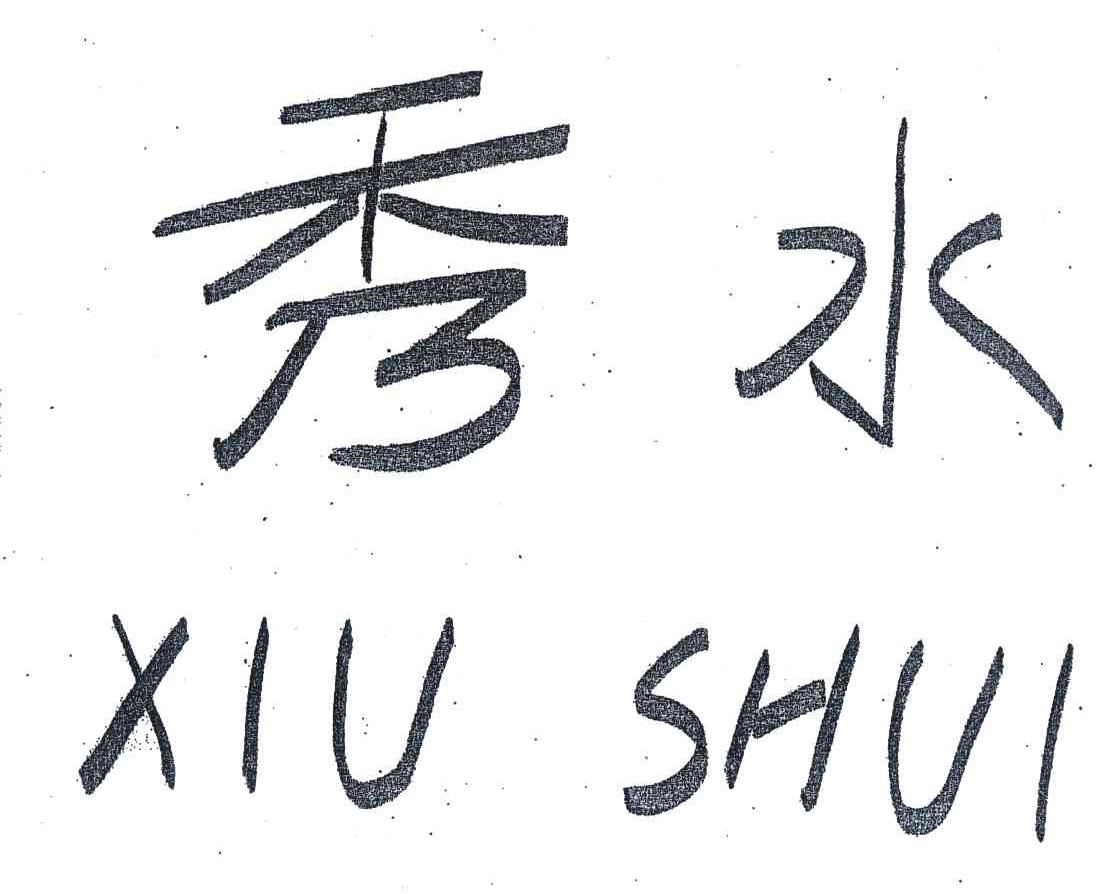 秀水
XIU SHUI